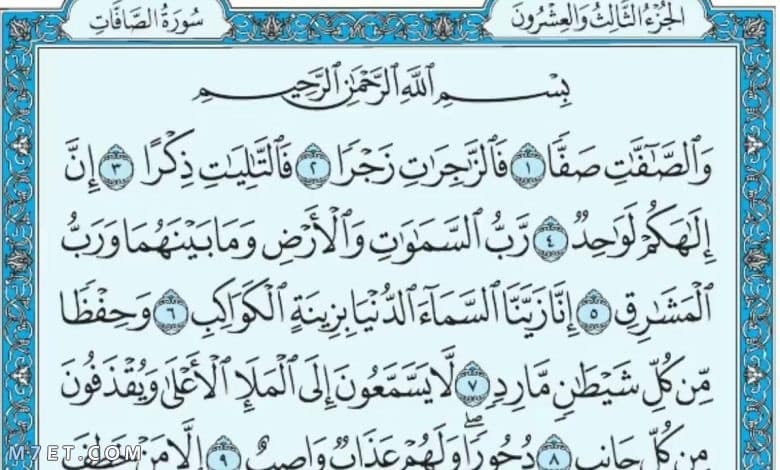 الجُزْءُ الثَّالِثُ وَالعِشْرُونَ
سُورَةُ الصَّافَاتِ
بِسْمِ ٱللَّهِ ٱلرَّحْمَٰنِ ٱلرَّحِيمِ
وَٱلصَّٰٓفَّٰتِ صَفّٗا ١ فَٱلزَّٰجِرَٰتِ زَجۡرٗا ٢ فَٱلتَّٰلِيَٰتِ ذِكۡرًا ٣ إِنَّ
إِلَٰهَكُمۡ لَوَٰحِدٞ ٤ رَّبُّ ٱلسَّمَٰوَٰتِ وَٱلۡأَرۡضِ وَمَا بَيۡنَهُمَا وَرَبُّ
ٱلۡمَشَٰرِقِ ٥ إِنَّا زَيَّنَّا ٱلسَّمَآءَ ٱلدُّنۡيَا بِزِينَةٍ ٱلۡكَوَاكِبِ ٦ وَحِفۡظٗا
مِّن كُلِّ شَيۡطَٰنٖ مَّارِدٖ ٧ لَّا يَسَّمَّعُونَ إِلَى ٱلۡمَلَإِ ٱلۡأَعۡلَىٰ وَيُقۡذَفُونَ
مِن كُلِّ جَانِبٖ ٨ دُحُورٗاۖ وَلَهُمۡ عَذَابٞ وَاصِبٌ ٩ إِلَّا مَنۡ خَطِفَ
M7ET.COM